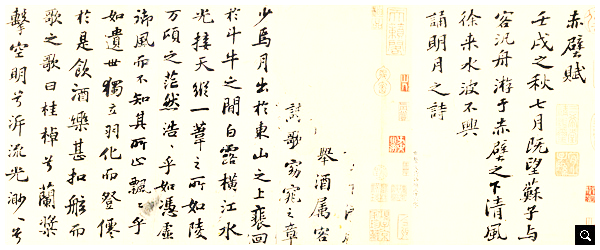 赤壁賦
壬戌之秋七月既望蘇子与
客汎舟游于赤壁之下清風
徐来水波不興
誦明月之詩
舉酒属客
歌窈窕之章
少焉月出於東山之上裴回
於斗牛之間白露橫江水
光接天縱一葦之所如陵
万頃之茫然浩〻乎如憑虛
御風而不知其所止飄〻乎
如遺世獨立羽化而登僊
於是飲酒樂甚扣舷而
歌之歌曰桂棹兮蘭槳
擊空明兮泝流光渺〻兮